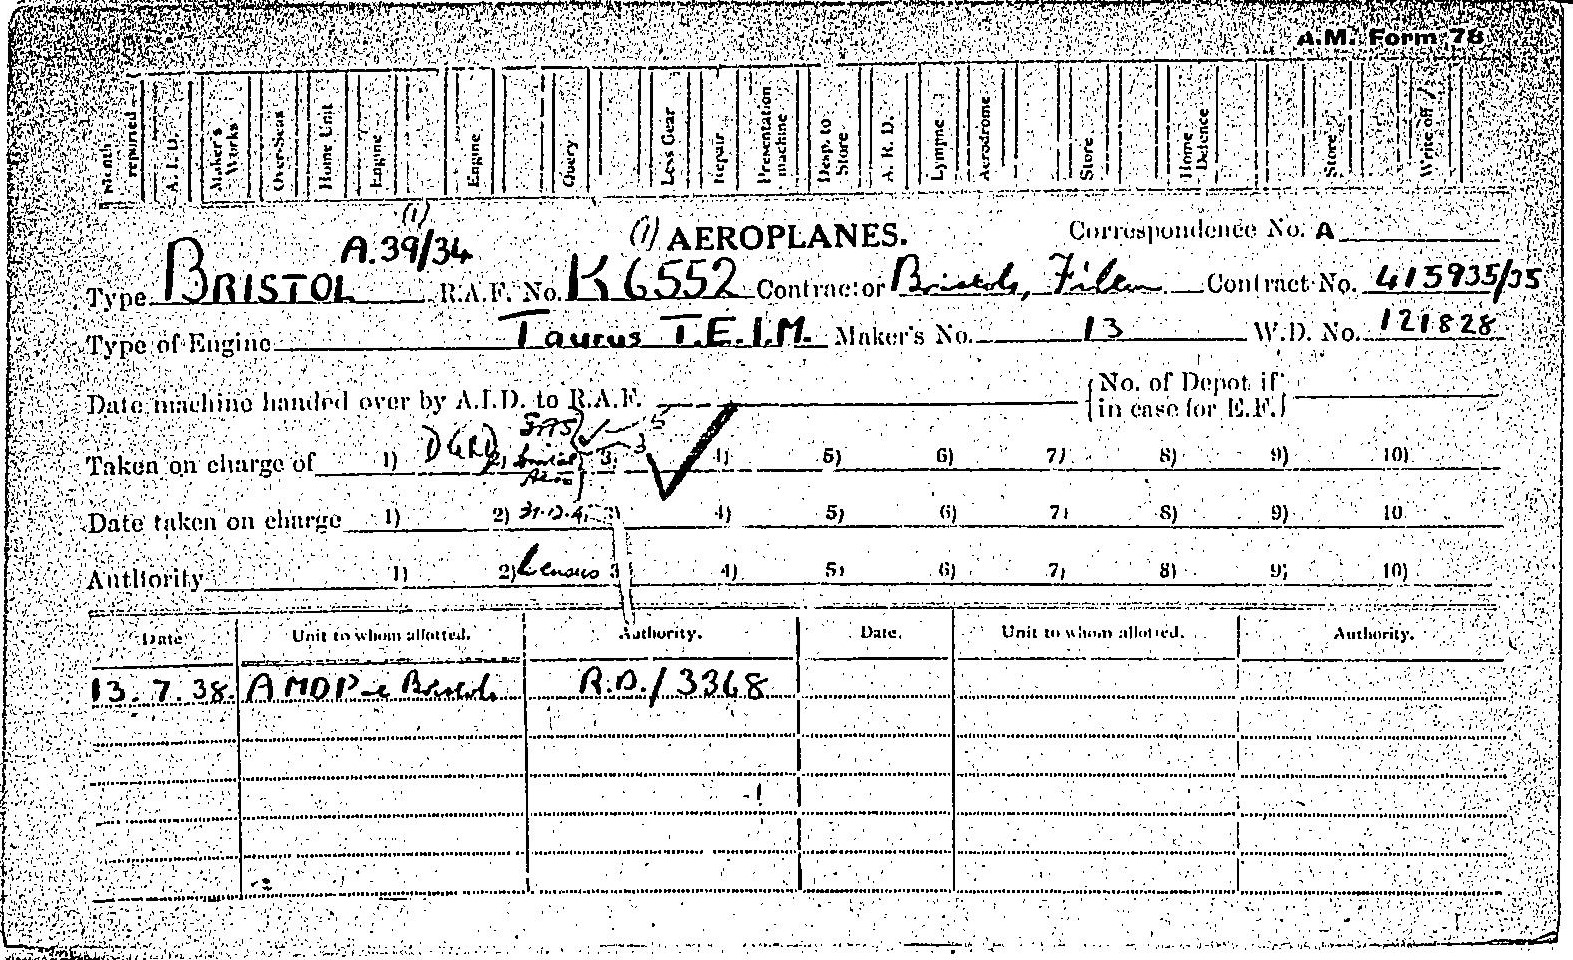 A.M. Form 78
Month reported A.I.D. Maker's Works Over-Seas Home Unit Engine Engine Query Less Gear Repair Presentation machine Desp. to Store A.R.D. Lympne Aerodrome Store Home Defence Store Write off
(1) (1) AEROPLANES. Correspondence No. A
A.39/34
Type BRISTOL R.A.F. No. K6552 Contractor Bristols, Filton Contract No. 415935/35
Type of Engine Taurus T.E.I.M. Maker's No. 13 W.D. No. 121828
Date machine handed over by A.I.D. to R.A.F. {No. of Depot if in case for E.F.}
Taken on charge of 1) DGRD 2) 3) 4) 5) 6) 7) 8) 9) 10)
Date taken on charge 1) 2) 31.12.41 3) 4) 5) 6) 7) 8) 9) 10
Authority 1) 2) Census 3) 4) 5) 6) 7) 8) 9) 10)
Date Unit to whom allotted. Authority. Date. Unit to whom allotted. Authority.
13.7.38. AMDP-c Bristols R.D./3368